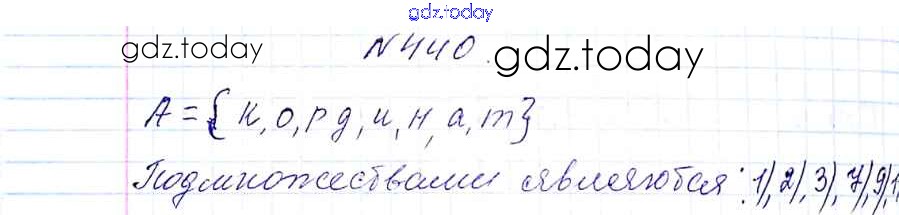 gdz.today
gdz.today
N 440.
gdz.today
A = {к, о, р д, и, н, а, т}
Подмножествами являются: 1), 2), 3), 7), 9), 1